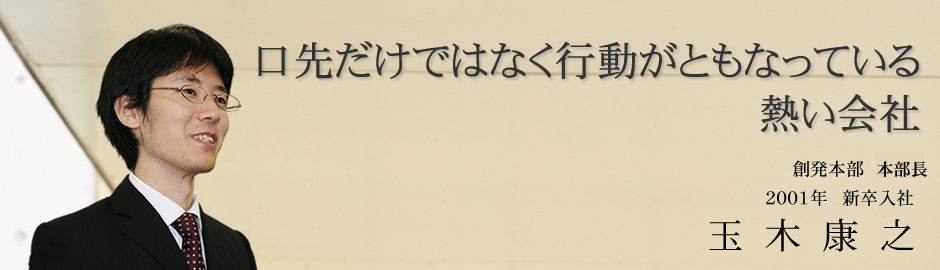 口先だけではなく行動がともなっている
熱い会社
創発本部 本部長
2001年 新卒入社
玉木康之